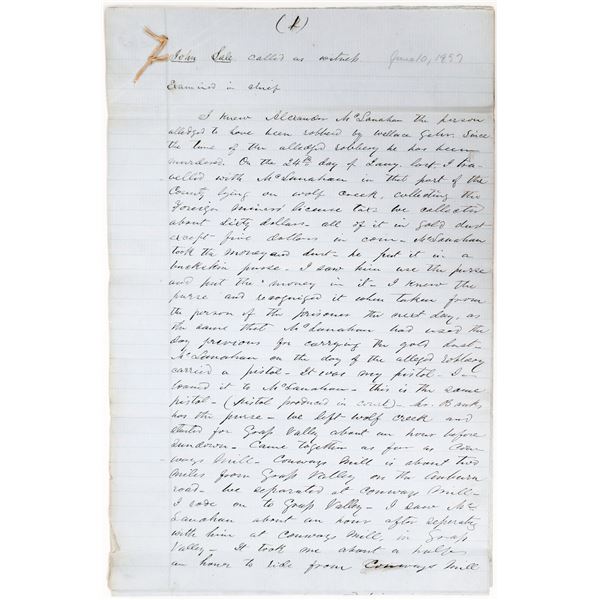 (1)
John Sale called as witness June 10, 1857
Examined in chief
I knew Alexander McLanahan the person
alledged to have been robbed by Wellace Gehr. Since
the time of the alledged robbery he has been
murdered. On the 24th day of Jany. last, I tra-
velled with McLanahan in that part of the
County lying on wolf creek, collecting the
Foreign Miners' license tax. We collected
about sixty dollars - all of it in gold dust
except five dollars in coin - McLanahan
took the money and dust - he put it in a
buckskin purse - I saw him use the purse
and put the money in it - I knew the
purse and recognized it when taken from
the person of the prisoner the next day, as
the same that McLanahan had used the
day previous for carrying the gold dust -
McLanahan on the day of the alleged robbery
carried a pistol - It was my pistol - I
loaned it to McLanahan - this is the same
pistol - (Pistol produced in court) - Mr. Banks
has the purse - We left wolf creek and
started for Grass Valley about an hour before
sundown - Came together as far as Con-
ways Mill - Conways Mill is about two
miles from Grass Valley on the Auburn
road - We separated at Conways Mill -
I rode on to Grass Valley - I saw Mc
Lanahan about an hour after seperating
with him at Conways Mill, in Grass
Valley - It took me about a half
an hour to ride from Conways Mill